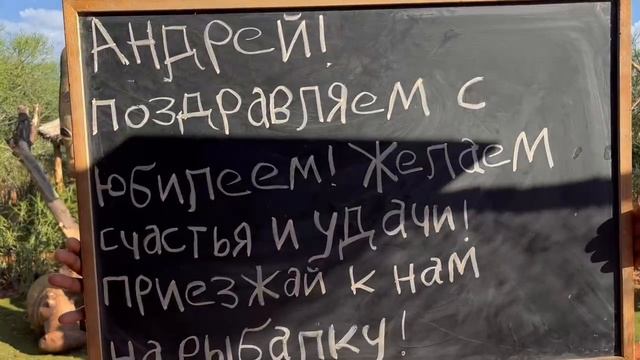 Андрей!
поздравляем с
юбилеем! Желаем
счастья и удачи!
приезжай к нам
на рыбалку!